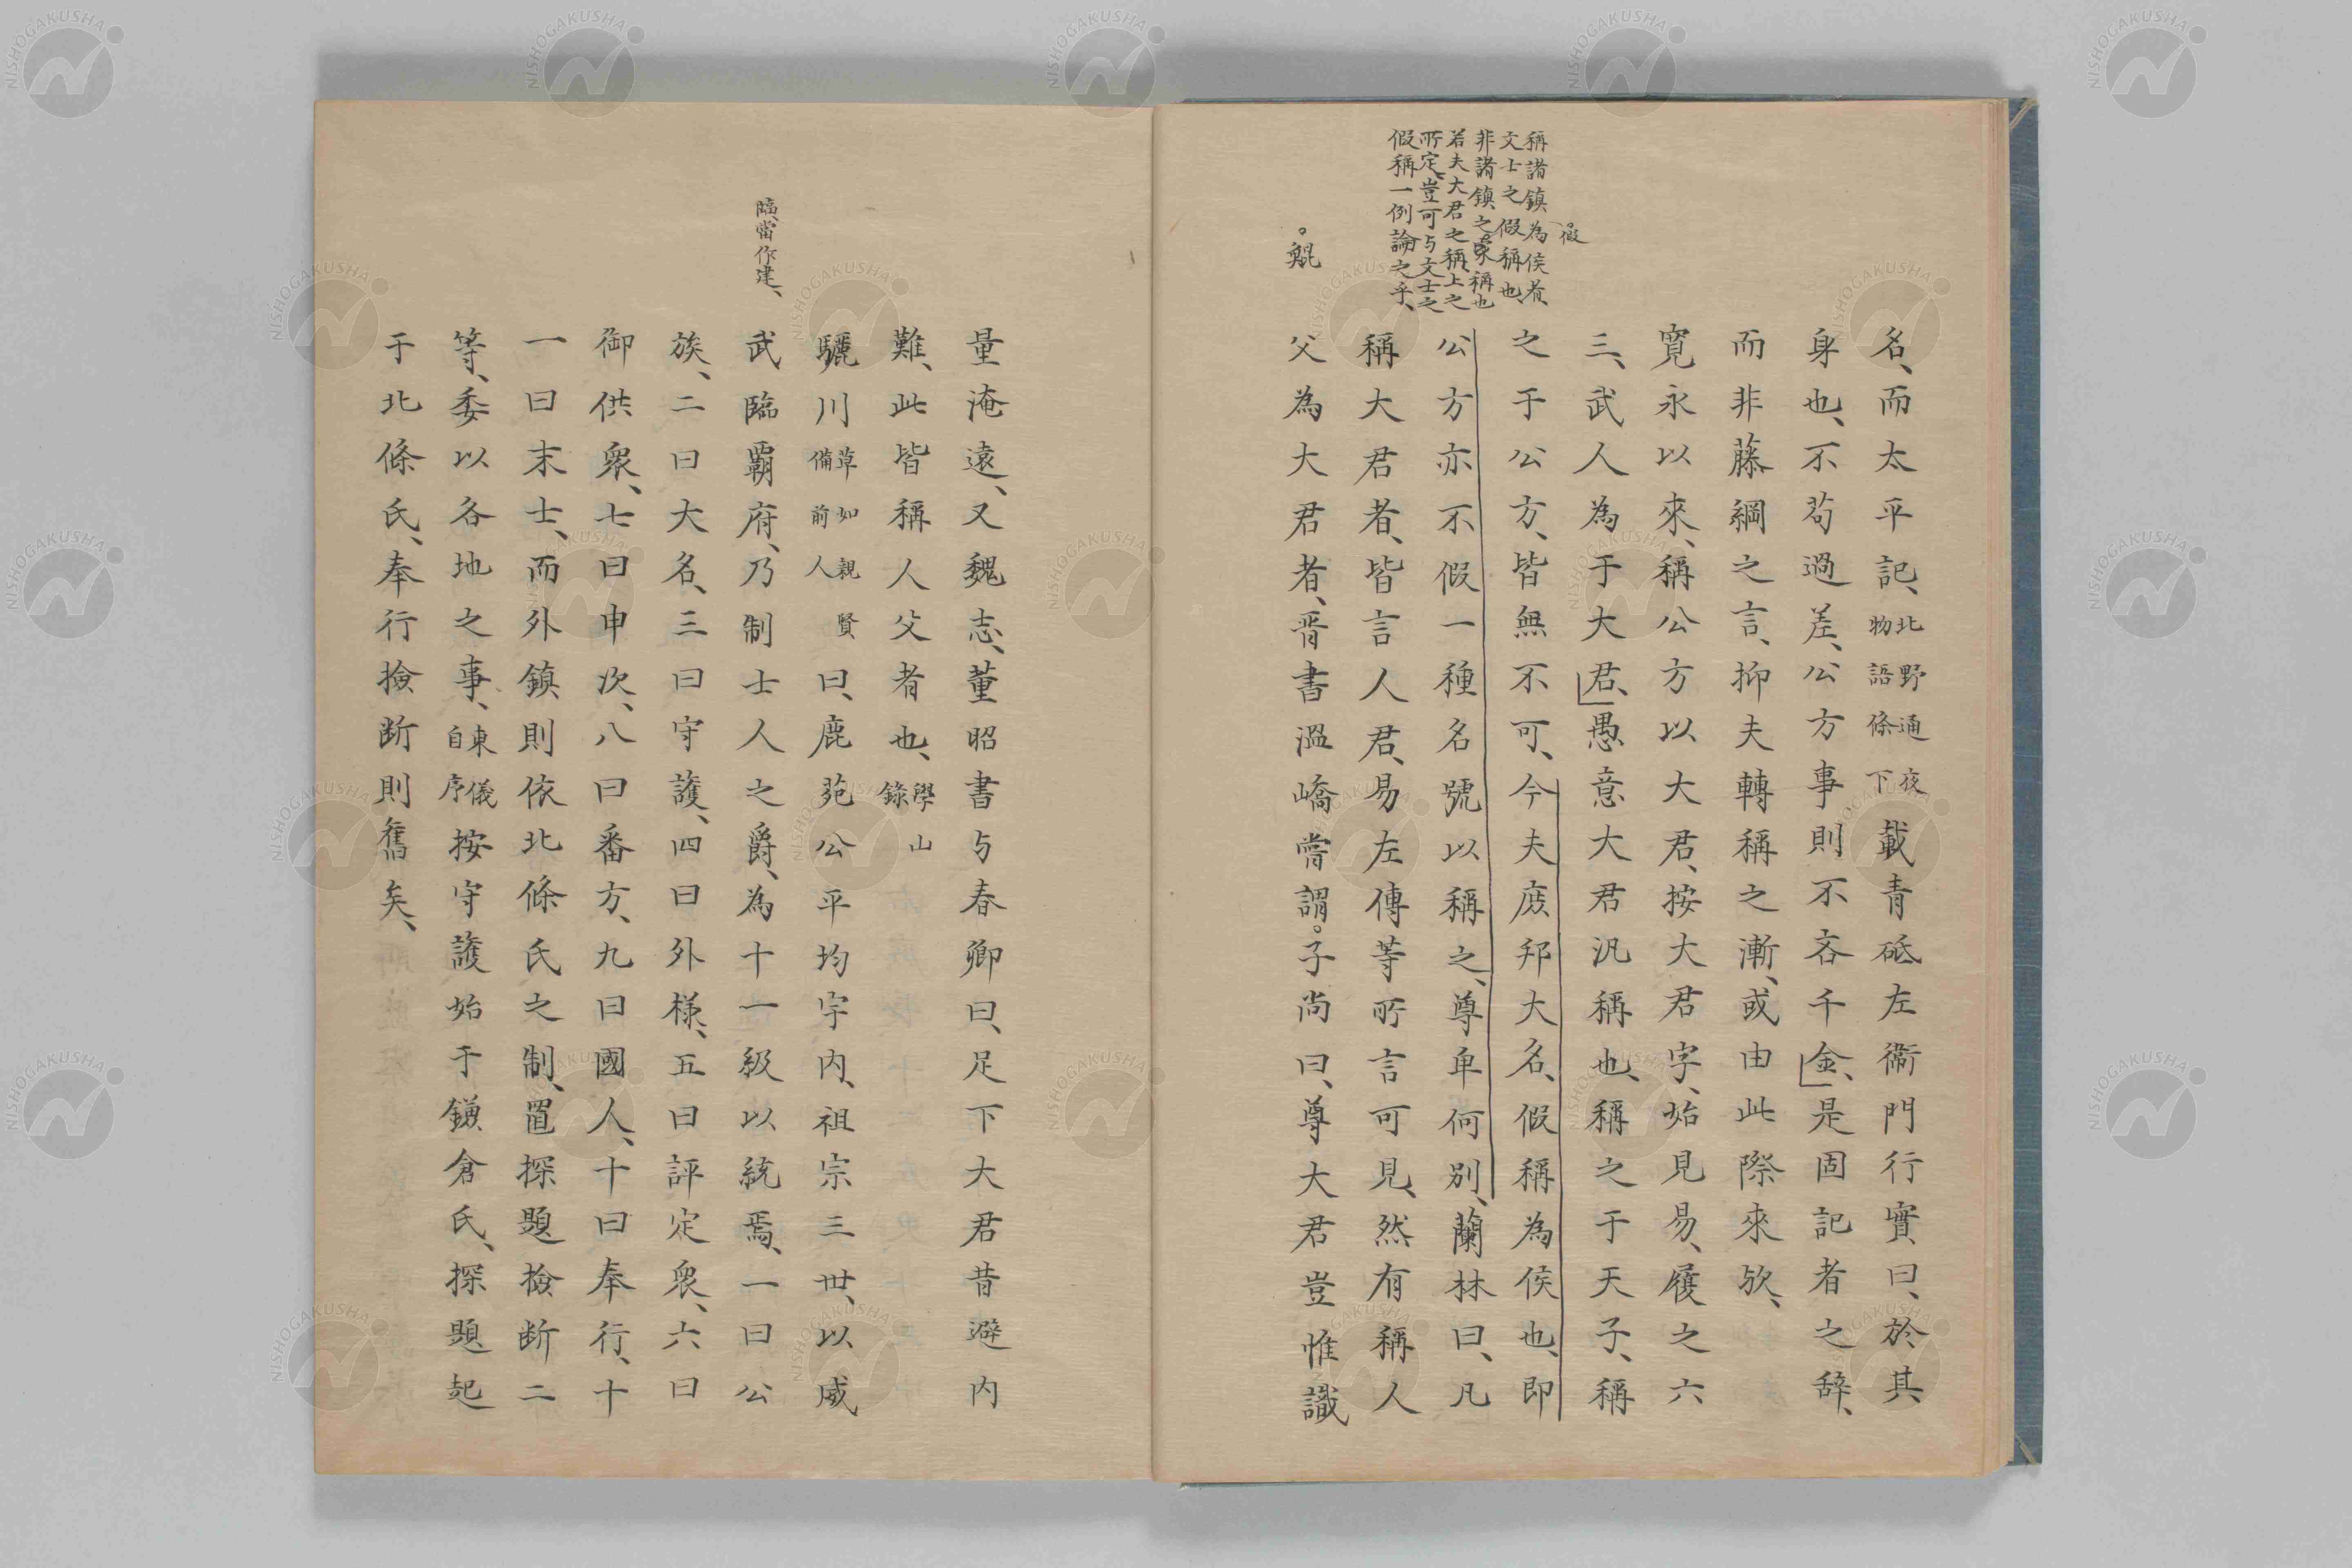 稱諸鎮為侯者、
。假
文士之假稱也、
非諸鎮之家稱也
若夫大君之稱、上之
所定、豈可与文士之
假稱一例論之乎、
。鯤
名、而太平記、北野通夜物語條下載青砥左衞門行實曰、於其
身也、不苟過差、公方事則不吝千金、是固記者之辞、
而非藤綱之言、抑夫轉稱之漸、或由此際來欤、
寛永以來、稱公方以大君、按大君字、始見易、履之六
三、武人為于大君、愚意大君汎稱也、稱之于天子、稱
之于公方、皆無不可、今夫庻邦大名、假稱為侯也、即
公方亦不假一種名號以稱之、尊卑何別、蘭林曰、凡
稱大君者、皆言人君、易左傳等所言可見、然有稱人
父為大君者、晋書溫嶠嘗謂。子尚曰、尊大君豈惟識
量淹遠、又魏志、董昭書与春卿曰、足下大君昔避内
難、此皆稱人父者也、學山錄
驪川草如親賢備前人曰、鹿苑公平均宇内、祖宗三世、以威
武臨覇府、乃制士人之爵、為十一級以統焉、一曰公
族、二曰大名、三曰守護、四曰外様、五曰評定衆、六曰
御供衆、七曰申次、八曰番方、九曰國人、十曰奉行、十
一曰末士、而外鎮則依北條氏之制、置探題撿断二
等、委以各地之事、東儀自序按守護始于鎌倉氏、探題起
于北條氏、奉行撿断則舊矣、
臨、當作建、
NISHOGAKUSHA